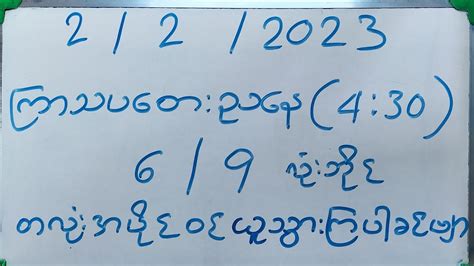 2 / 2 / 2023
ကြာသပတေးညနေ (4:30)
6 / 9 လုံးဘိုင်
တလုံးအပိုင်ဝင်ယူသွားကြပါခင်ဗျာ